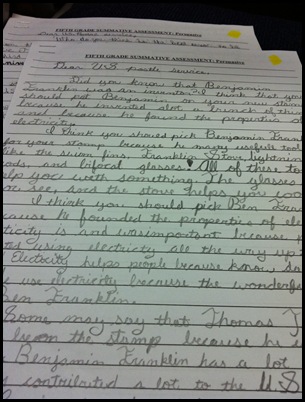 FIFTH GRADE SUMMATIVE ASSESSMENT: Persuasive
FIFTH GRADE SUMMATIVE ASSESSMENT: Persuasive
Dear U.S postle service,
Did you know that Benjamin
Franklin was an inventor? I think that you
should put Benjamin on your new stamp
because he invented alot a bunch of things
and because he found the properties of
electricity.
I think you should pick Benjamin Fran
for your stamp because he many usefull tool
like the swim fins, Franklin stove, lightning
rods, and bifocal glasses. All of these to
help you with something. The glasses
you see, and the stove helps you coo
I think you should pick Ben Fran
cause he founded the properties of ele
ticity is and was important because
are using electricity all the way up
Electricity helps people because know
use electricity because the wonderfu
Ben Franklin.
Some may say that Thomas J
be on the stamp because he
Benjamin Franklin has a lot
contributed a lot to the US